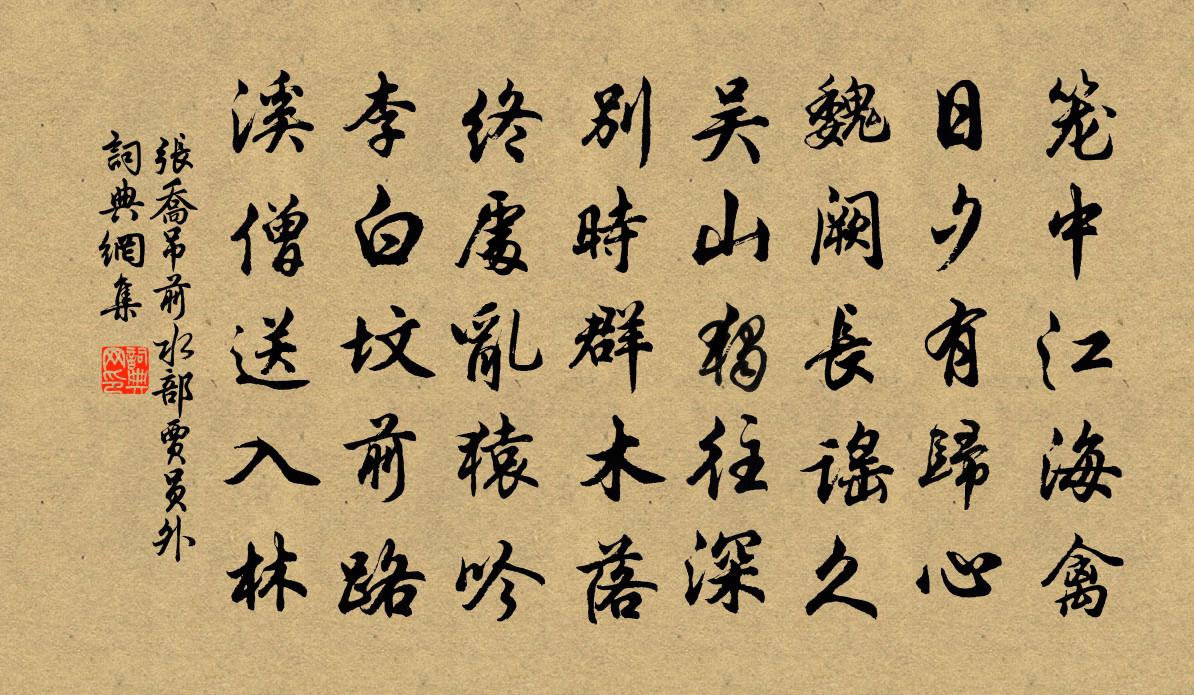 笼中江海禽
日夕有歸心
魏阙長謡久
吴山獨往深
别時群木落
終處亂猿吟
李白坟前路
溪僧送入林
張喬吊前水部賈員外
詞典網集
詞典网印